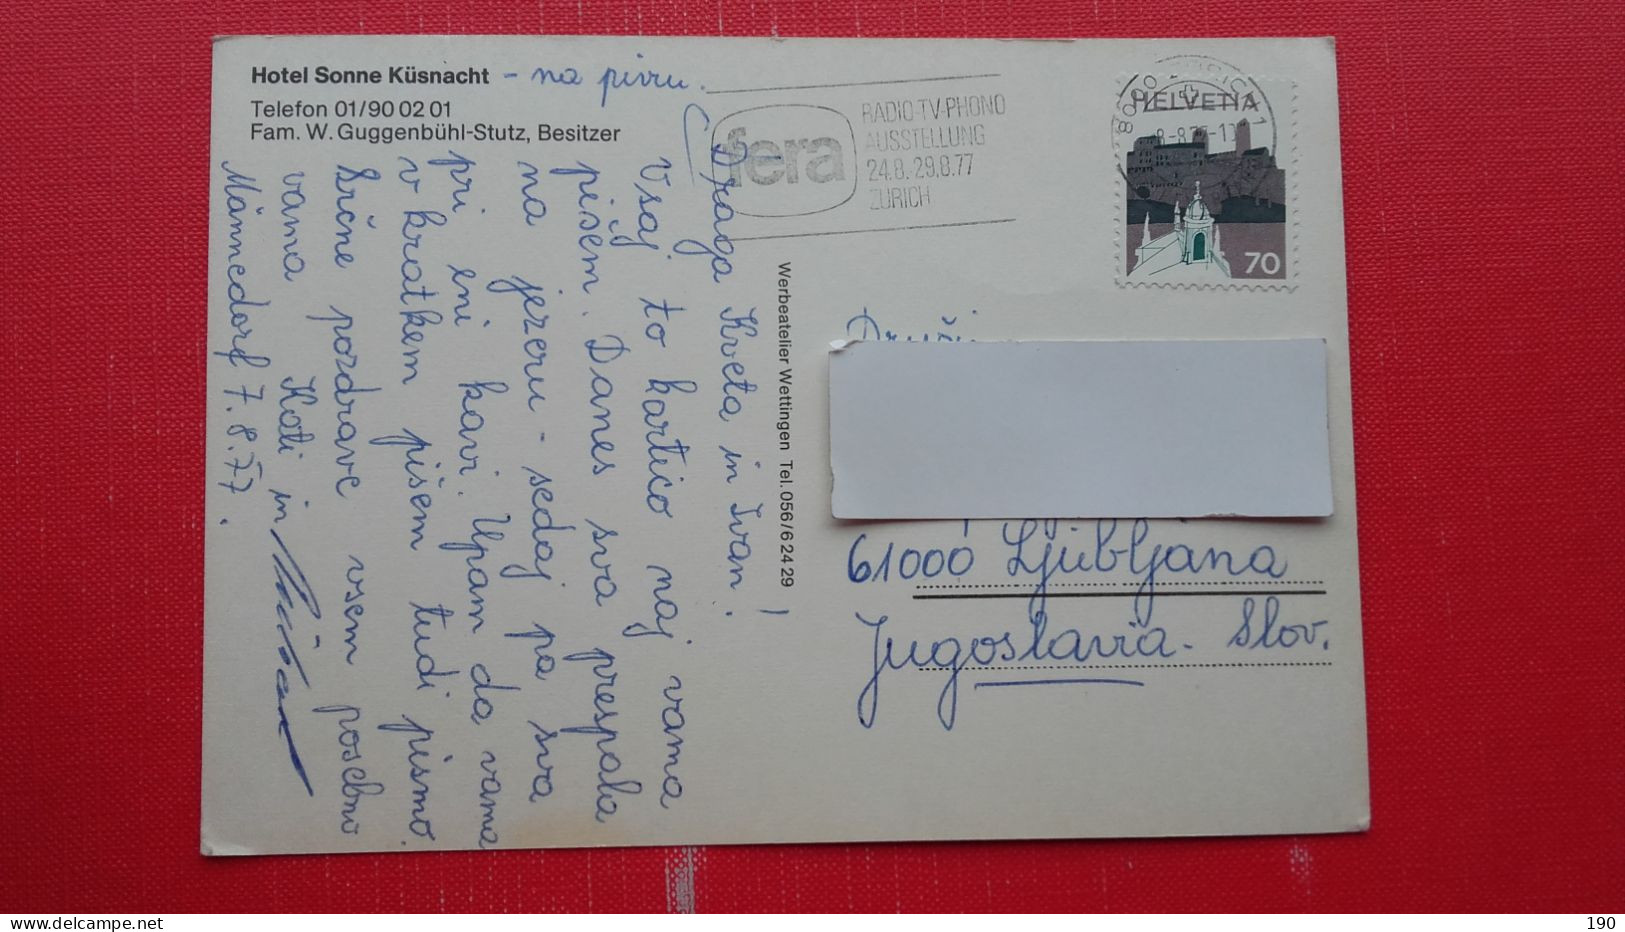 Hotel Sonne Küsnacht - na pivu.
Telefon 01/90 02 01
Fam. W. Guggenbühl-Stutz, Besitzer
fera
RADIO-TV-PHONO
AUSSTELLUNG
24.8.-29.8.77
ZÜRICH
HELVETIA
70
Draga Kveta in Ivan!
Vsaj to kartico naj vama
pišem. Danes sva prespala
na jezeru - sedaj pa sva
pri eni kavi. Upam da vama
v kratkem pišem tudi pismo.
Srčne pozdrave vsem posebno
vama Koti in
Männedorf 7.8.77.
Werbeatelier Wettingen Tel. 056/6 24 29
61000 Ljubljana
Jugoslavia - Slov.
190